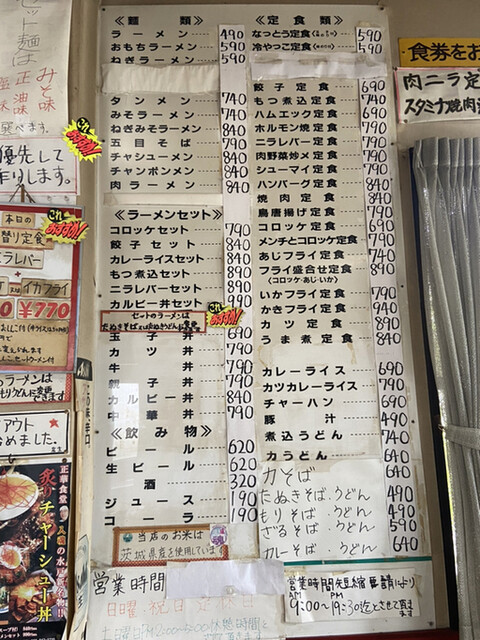 《麺類》
ラーメン 490
おもちラーメン 590
ねぎラーメン 590
タンメン 740
みそラーメン 740
ねぎみそラーメン 840
五目そば 740
チャシューメン 840
チャンポンメン 840
肉ラーメン 840
《ラーメンセット》
コロッケセット 790
餃子セット 840
カレーライスセット 840
もつ煮込セット 890
ニラレバーセット 890
カルビー丼セット
セットのラーメンは
たぬきそば又はたぬきうどんに変更
玉子丼 690
カツ丼 790
牛丼 790
親子丼 790
カルビー丼 840
中華丼 790
《飲み物》
ビール 620
生ビール 620
酒 320
ジュース 190
コーラ 190
当店のお米は
茨城県産を使用しています
営業時間
日曜、祝日定休日
《定食類》
なっとう定食 590
冷やっこ定食 590
餃子定食 690
もつ煮込定食 740
ハムエック定食 690
ホルモン焼定食 790
ニラレバー定食 790
肉野菜炒メ定食 790
シューマイ定食 790
ハンバーグ定食 840
焼肉定食 840
鳥唐揚げ定食 790
コロッケ定食 690
メンチとコロッケ定食 790
あじフライ定食 740
フライ盛合せ定食 890
(コロッケ・あじ・いか)
いかフライ定食 790
かきフライ定食 940
カツ定食 890
うま煮定食 840
カレーライス 690
カツカレーライス 790
チャーハン 690
豚汁 490
煮込うどん 740
カうどん 640
カそば 640
たぬきそば.うどん 490
もりそば.うどん 490
ざるそば.うどん 590
カレーそば.うどん 640
AM PM
9:00〜19:30迄とさせて頂きます
食券をお
肉ニラ定
スタミナ焼肉
みそ味
塩味
正油
優先して
作りします。
これおすすめ!
本日の
日替り定食
ニラレバー
+
イカフライ
￥770
らラーメンは
アウト
始めました。
正華食堂
炙りチャーシュー丼